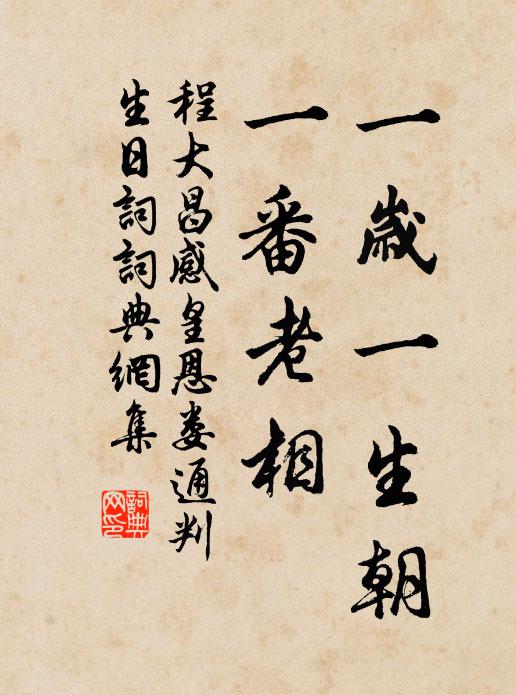 一歲一生朝
一番老相
程大昌感皇恩娄通判
生日詞詞典網集
詞典
网印